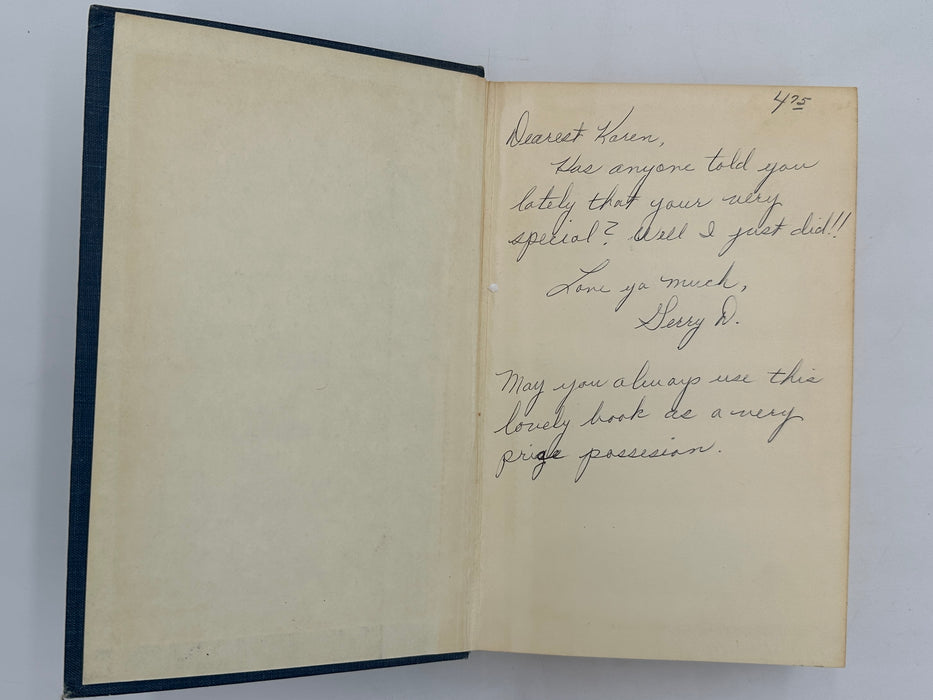 4 75
Dearest Karen,
Has anyone told you
lately that your very
special? Well I just did!!
Love ya much,
Gerry D.
May you always use this
lovely book as a very
prize possesion.